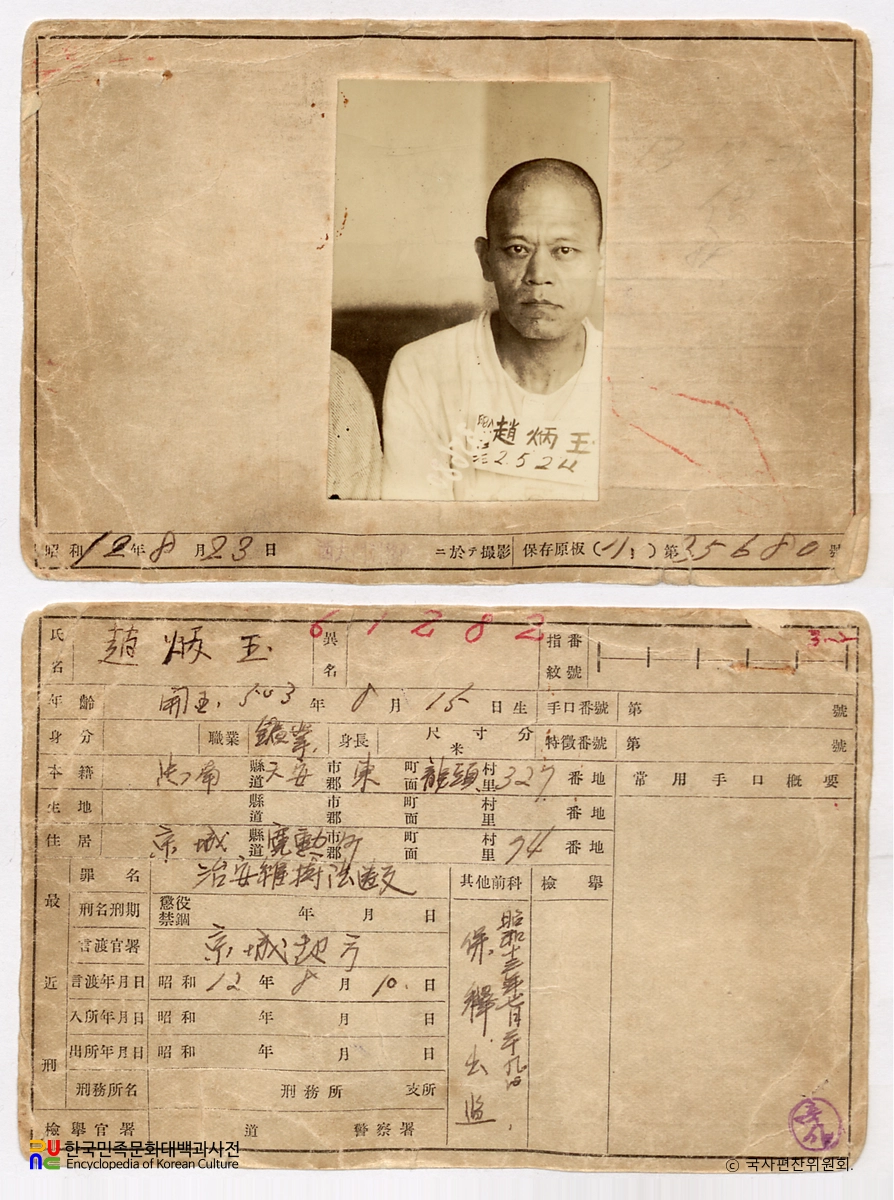 趙炳玉
2524
昭和12年8月23日 ニ於テ撮影 保存原板 第35680號
氏名 趙炳玉 異名 指紋番號
61282
年齡 開国 503年8月15日生 手口番號 第 號
身分 職業 鑛業 身長 尺寸分 米 特徵番號 第 號
本籍 南 縣道 天安 市郡 東 町面 龍頭 村里 327 番地 常用手口概要
生地 縣道 市郡 町面 村里 番地
住居 京城 縣道 寬勳 市郡 町面 村里 74 番地
最近刑
罪名 治安維持法違反 其他前科 檢擧
刑名刑期 懲役 禁錮 年 月 日
言渡官署 京城
言渡年月日 昭和12年8月10日
入所年月日 昭和 年 月 日
出所年月日 昭和 年 月 日
刑務所名 刑務所 支所
檢擧官署 道 警察署
昭和十三年七月二十九日
保釋出監
한국민족문화대백과사전
Encyclopedia of Korean Culture
© 국사편찬위원회.